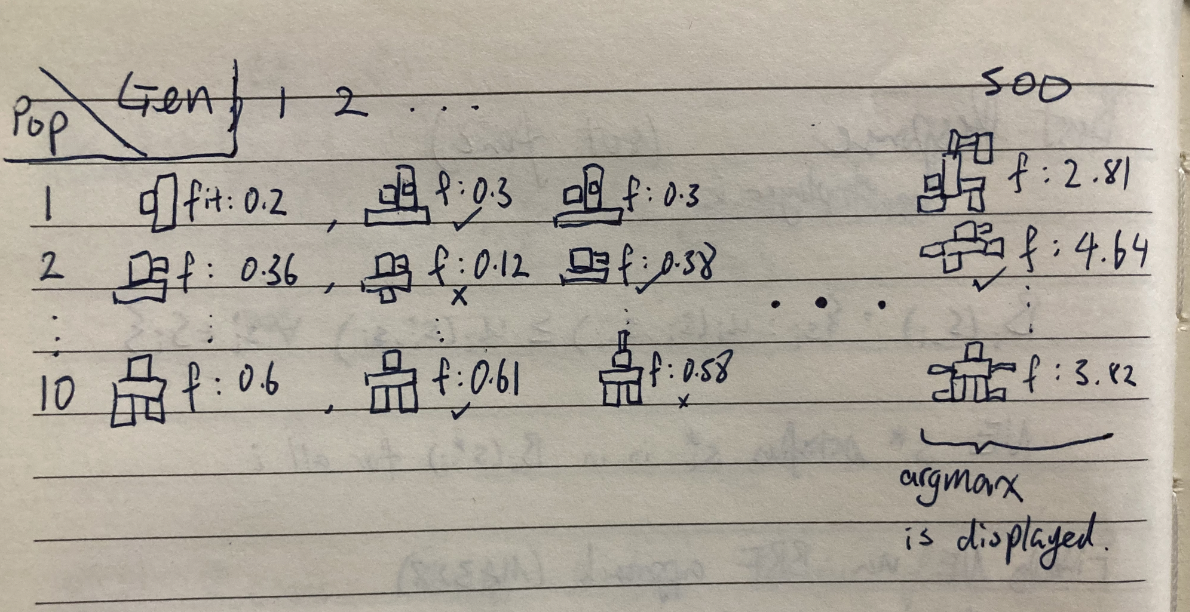 Pop Gen 1 2 ... 500
1 fit: 0.2 , f: 0.3 ✓ f: 0.3 f: 2.81
2 f: 0.36 , f: 0.12 x f: 0.38 ✓ f: 4.64 ✓
⋮ ⋮ ⋮ ⋮ • • • ⋮
10 f: 0.6 , f: 0.61 ✓ f: 0.58 x f: 3.
argmax
is displayed.